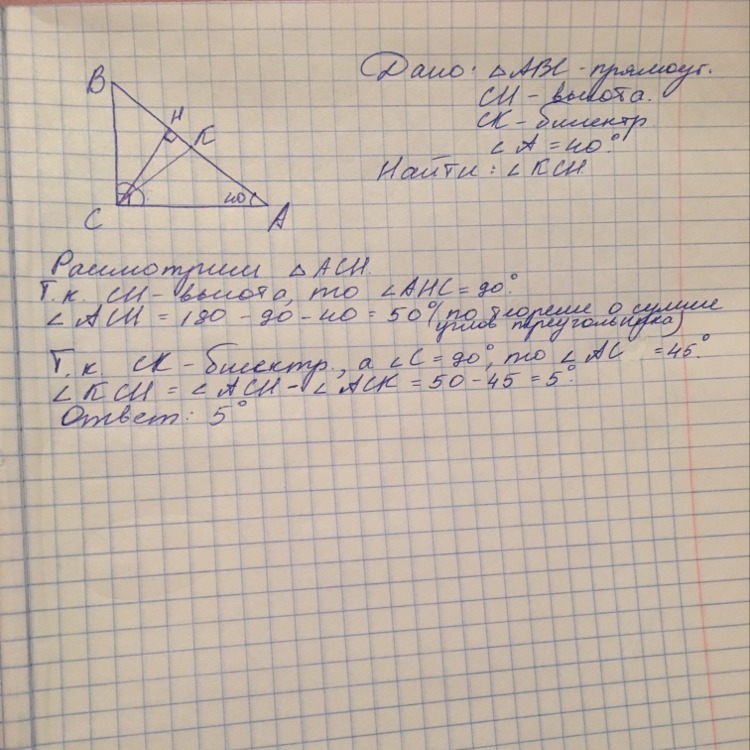 B
H
K
C
40
A
Дано: △ABC - прямоуг.
CH - высота.
CK - биссектр
∠A = 40°
Найти: ∠KCH
Рассмотрим △ACH.
Т.к. CH - высота, то ∠AHC = 90°
∠ACH = 180 - 90 - 40 = 50° (по теореме о сумме
углов треугольника)
Т.к. CK - биссектр., а ∠C = 90°, то ∠AC = 45°.
∠KCH = ∠ACH - ∠ACK = 50 - 45 = 5°.
Ответ: 5°